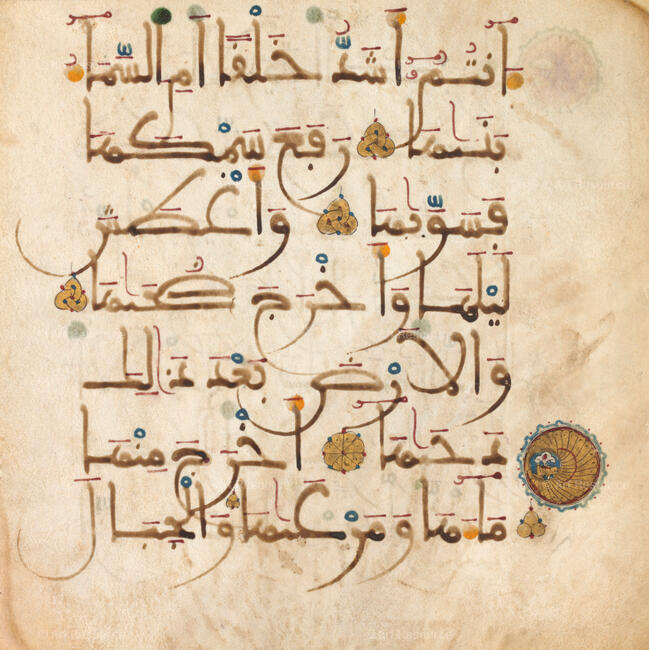 ءَأَنتُمْ أَشَدُّ خَلْقًا أَمِ السَّمَآءُ
بَنَىٰهَا رَفَعَ سَمْكَهَا
فَسَوَّىٰهَا وَأَغْطَشَ
لَيْلَهَا وَأَخْرَجَ ضُحَىٰهَا
وَالْأَرْضَ بَعْدَ ذَٰلِكَ
دَحَىٰهَا أَخْرَجَ مِنْهَا
مَآءَهَا وَمَرْعَىٰهَا وَالْجِبَالَ